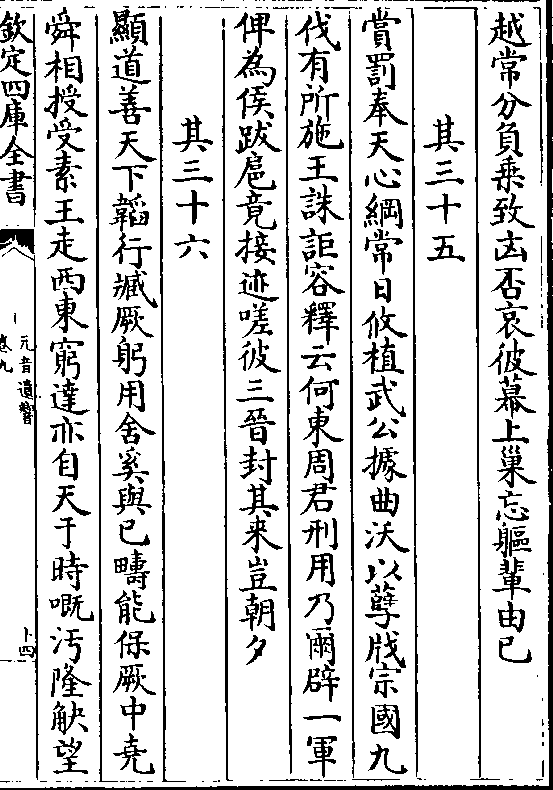 越常分負乗致凶否哀彼幕上巢忘軀輩由已
其三十五
賞罰奉天心綱常日攸植武公據曲沃以孽戕宗國九
伐有所施王誅詎容釋云何東周君刑用乃爾辟一軍
俾為侯跋扈竟接迹嗟彼三晉封其来豈朝夕
其三十六
顯道善天下韜行臧厥躬用舍奚與已疇能保厥中堯
舜相授受素王走西東窮達亦自天于時嘅汚隆觖望
欽定四庫全書
元音遺響
卷九
十四